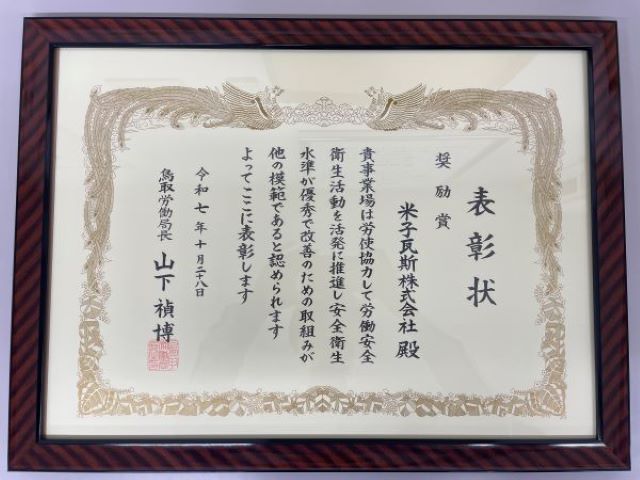 表彰状
奨励賞
米子瓦斯株式会社 殿
貴事業場は労使協力して労働安全
衛生活動を活発に推進し安全衛生
水準が優秀で改善のための取組みが
他の模範であると認められます
よってここに表彰します
令和七年十月二十八日
鳥取労働局長 山下禎博